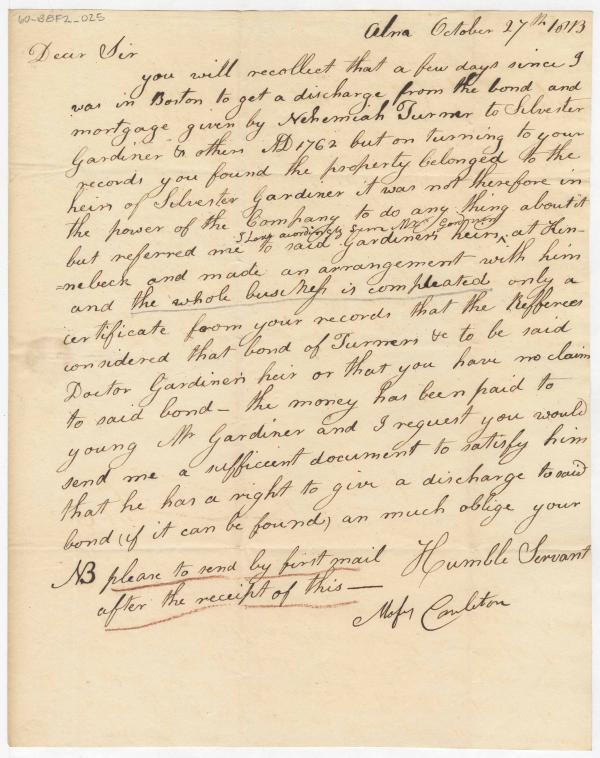 60-BBF2_025
Alna October 27th 1813
Dear Sir
you will recollect that a few days since I
was in Boston to get a discharge from the bond and
mortgage given by Nehemiah Turner to Silvester
Gardiner & others AD 1762 but on turning to your
records you found the property belonged to the
heirs of Silvester Gardiner it was not therefore in
the power of the Company to do any thing about it
I have acordingly seen Mr Gardiner
but referred me to said Gardiner's heirs ^ at Ken-
=nebeck and made an arrangement with him
and the whole business is compleated only a
certificate from your records that the Refferees
considered that bond of Turners &c to be said
Doctor Gardiner's heir or that you have no claim
to said bond — the money has been paid to
young Mr Gardiner and I request you would
send me a sufficient document to satisfy him
that he has a right to give a discharge to said
bond (if it can be found) an much oblige your
Humble Servant
NB please to send by first mail
after the receipt of this —
Moses Carleton